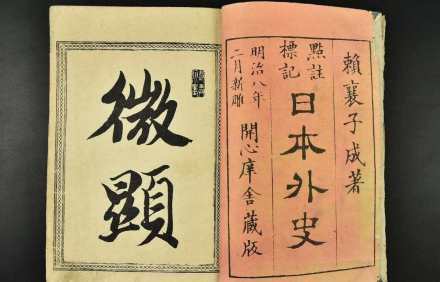 賴襄子成著
點註
標記
日本外史
明治八年
二月新雕
開心庠舎蔵版
微顯